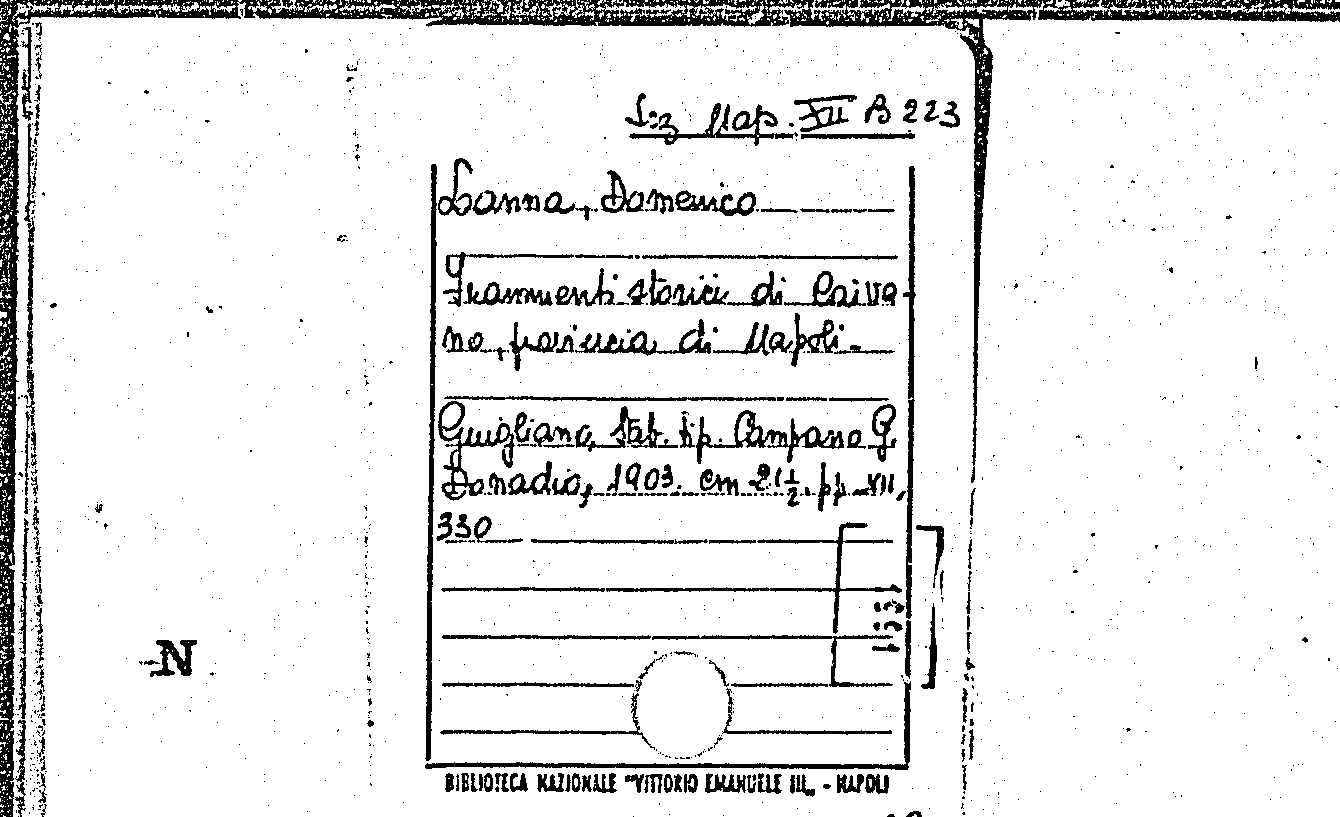 Sez Nap. XII B 223
Lanna, Domenico
Frammenti storici di Caiva-
no, provincia di Napoli.
Giugliano, Stab. tip. Campano G.
Donadio, 1903. cm 21 1/2. pp. VII,
330
N
BIBLIOTECA NAZIONALE "VITTORIO EMANUELE III„ - NAPOLI